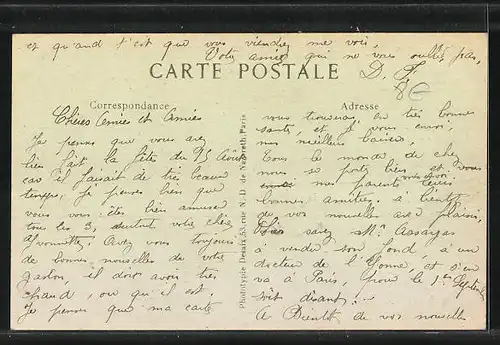 et quand c'est que vous viendrez me voir,
Votre amie qui ne vous oublie pas,
CARTE POSTALE
D. J.
8€
Correspondance
Chères Amies et Amies
Je pense que vous avez
bien fait la fête du 15 Août
car il faisait de très beau
temps, je pense bien que
vous vous êtes bien amusée
tous les 3, surtout votre chère
Yvonnette. Avez vous toujours
de bonnes nouvelles de votre
garçon, il doit avoir très
chaud, où qu'il est
Je pense que ma carte
Phototypie Desaix 53, rue N.-D. de Nazareth, Paris
Adresse
vous trouvera en très bonne
santé, et je vous envoi,
mes meilleurs baisers,
Tous le monde de chez
nous se porte bien et vous
mes parents
bonnes amitiés. à bientôt
de vos nouvelles avec plaisir,
savez Mr
a vendu son fond, à un
docteur de l'Yonne, et s'en
va à Paris, pour le 1er Septembre
soit disant!..
A Bientôt de vos nouvelles